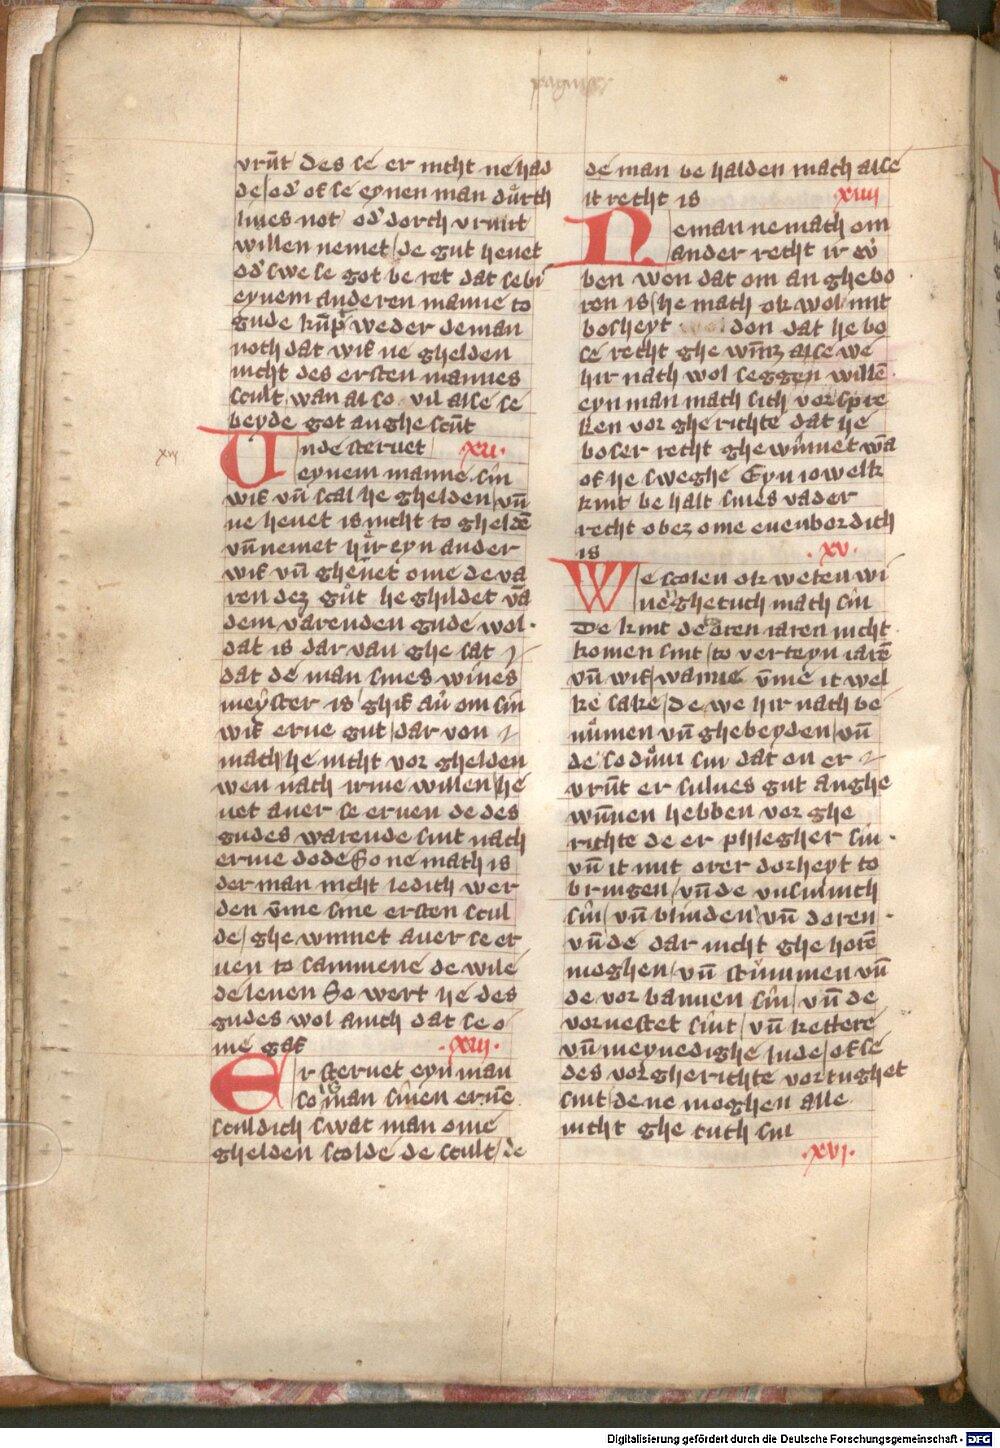 vrūt des se er nicht ne had
de od' ok se eynen man dorch
liues not od' dorch vrunt
willen nemet de gut heuet
od' swe se got be ret dat se bi
eynem anderen manne to
gude kūp weder de man
noch dat wif ne ghelden
nicht des ersten mannes
scult wan al so vil alse se
beyde got anghe scūt
xii.
Vnde steruet
eynem manne sin
wif vn̄ scal he ghelden vn̄
ne heuet is nicht to gheldē
vn̄ nemet hir eyn ander
wif vn̄ gheuet ome de va
ren dez gut he ghildet vā
dem varenden gude wol
dat is dar van ghe sat
dat de man sines wiues
meyster is ghif au' om sin
wif erue gut dar von
mach he nicht vor ghelden
wen nach irme willen he
uet auer se eruen de des
gudes warende sint nach
erme dode So ne mach is
der man nicht ledich wer
den vm̄e sine ersten scul
de ghe winnet auer se er
uen to sammene de wile
de leuen Se wert he des
gudes wol anich dat se o
me gaf
.xiii.
Er steruet eyn man
so man sinen eruē
sculdich swat man ome
ghelden scolde de scult de
de man be halden mach alse
it recht is
xiiii
Neman ne mach om
ander recht ir ey
ben wen dat om an ghebo
ren is he mach ok wol mit
bosheyt don dat he bo
se recht ghe win̄z alse we
hir nach wol seggen willē.
eyn man mach sich vor spre
ken vor gherichte dat he
boser recht ghewinnet wā
of he sweghe Eyn iowelk
kint be halt sines vader
recht obez ome euenbordich
is
.xv.
We scolen ok weten wi
ne ghetuch mach sin
De kint de to eren iaren nicht
komen sint to verteyn iarē
vn̄ wif wanne vm̄e it wel
ke sake de we hir nach be
nūmen vn̄ ghebeyden vn̄
de so dum sin dat on er
vrūt er sulues gut anghe
wūnen hebben vor ghe
richte de er phlegher sin
vn̄ it mit orer dorheyt to
bringen vn̄ de vnsinnich
sin vn̄ blinden vn̄ doren
vn̄ de dar nicht ghe horē
moghen vn̄ stummen vn̄
de vor bannen sin vn̄ de
vor uestet sint vn̄ kettere
vn̄ meynedighe lude of se
des vor gherichte vor tughet
sint de ne moghen alle
nicht ghe tuch sin
.xvi.
Digitalisierung gefördert durch die Deutsche Forschungsgemeinschaft - DFG